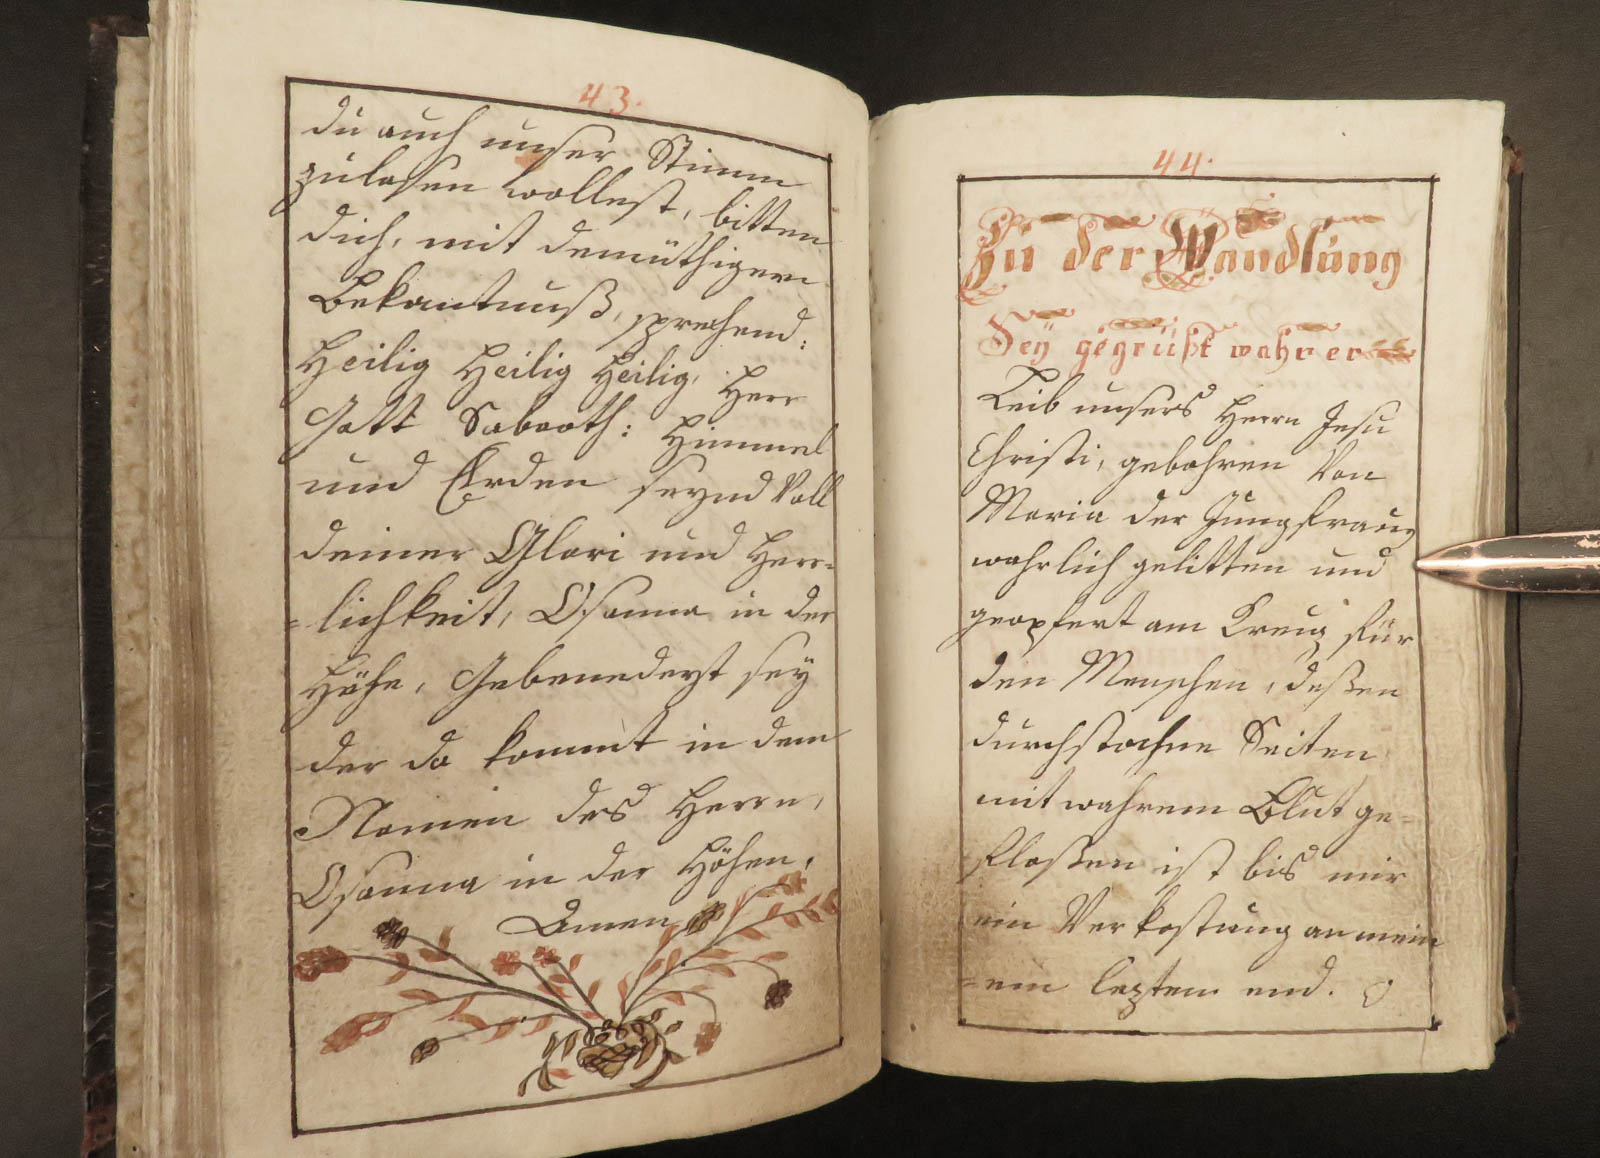 43.
du auch unser Stimm
zulaßen wollest, bitten
dich, mit demüthigem
Bekantnuß, sprechend:
Heilig Heilig Heilig, Herr
Gott Sabaoth: Himmel
und Erden seynd Voll
deiner Glori und Herr=
=lichkeit, Osanna in der
Höhe, Gebenedeyt sey
der da kommt in dem
Namen des Herrn,
Osanna in der Höhen,
Amen
44.
Zu der Wandlung
Sey gegrüßt wahrer
Leib unsers Herrn Jesu
Christi, gebohren Von
Maria der Jungfrauen
wahrlich gelitten und
geopfert am Creuz für
den Menschen, deßen
durchstochne Seiten
mit wahrem Blut ge=
floßen ist bis mir
ein Verkostung an mein
=em lezten end.